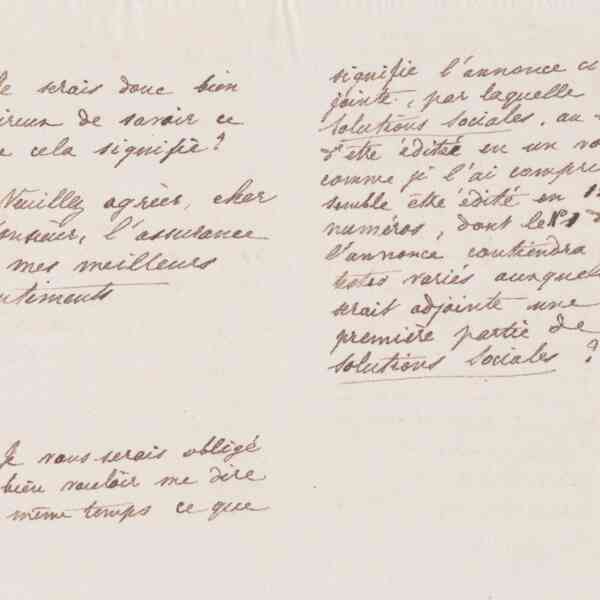 Je serais donc bien
ireux de savoir ce
e cela signifie ?
Veuillez agréer, cher
onsieur, l'assurance
mes meilleurs
ntiments
Je vous serais obligé
bien vouloir me dire
même temps ce que
signifie l'annonce ci
jointe, par laquelle
solutions sociales, au
d'être éditée en un vo
comme je l'ai compri
semble être édité en 1
numéros, dont le N° 1 d
l'annonce contiendra
textes variés auxquel
serait adjointe une
première partie de
solutions sociales ?